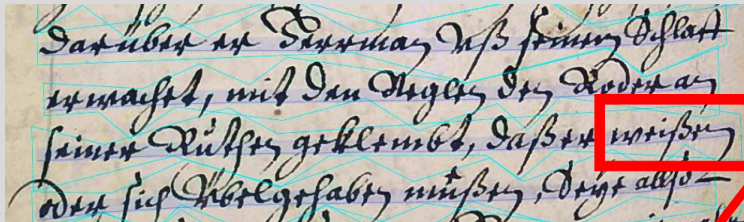 darüber er Herrman Uß seinem Schlaff
erwachet, mit den Neglen den Koder an
seiner Rüthen geklembt, daß er weißen
oder sich Vbel gehaben müßen, Seye also